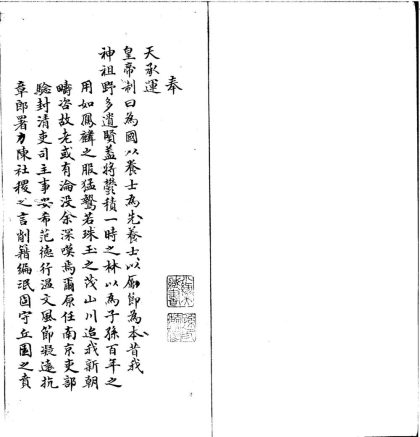 奉
天承運
皇帝制曰為國以養士為先養士以勵節為本昔我
神祖野多遺賢蓋將鬱積一時之林以為子孫百年之
用如鳳麟之服猛鷙若珠玉之茂山川迨我新朝
疇咨故老或有淪没余深嘆焉爾原任南京吏部
驗封清吏司主事安希范德行溫文風節凝遠抗
章郎署力陳社稷之言削籍編氓固守丘園之賁